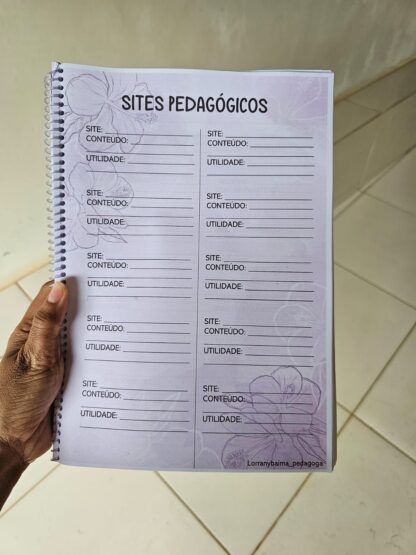 SITES PEDAGÓGICOS
SITE:
CONTEÚDO:
UTILIDADE:
SITE:
CONTEÚDO:
UTILIDADE:
SITE:
CONTEÚDO:
UTILIDADE:
SITE:
CONTEÚDO:
UTILIDADE:
SITE:
CONTEÚDO:
UTILIDADE:
SITE:
CONTEÚDO:
UTILIDADE:
SITE:
CONTEÚDO:
UTILIDADE:
SITE:
CONTEÚDO:
UTILIDADE:
SITE:
CONTEÚDO:
UTILIDADE:
SITE:
CONTEÚDO:
UTILIDADE:
Lorranybaima_pedagoga